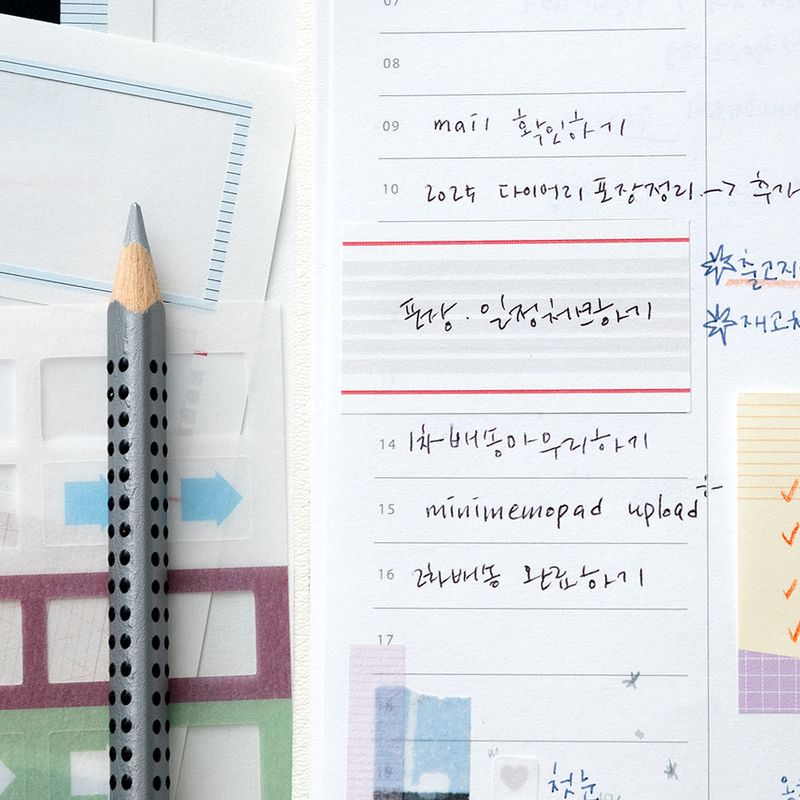 07
08
09 mail 확인하기
10 2025 다이어리 포장정리 → 추가
출고지
포장 · 일정체크하기
재고차
14 1차배송마무리하기
15 minimemopad upload
16 2차배송 완료하기
17
18
19 첫눈